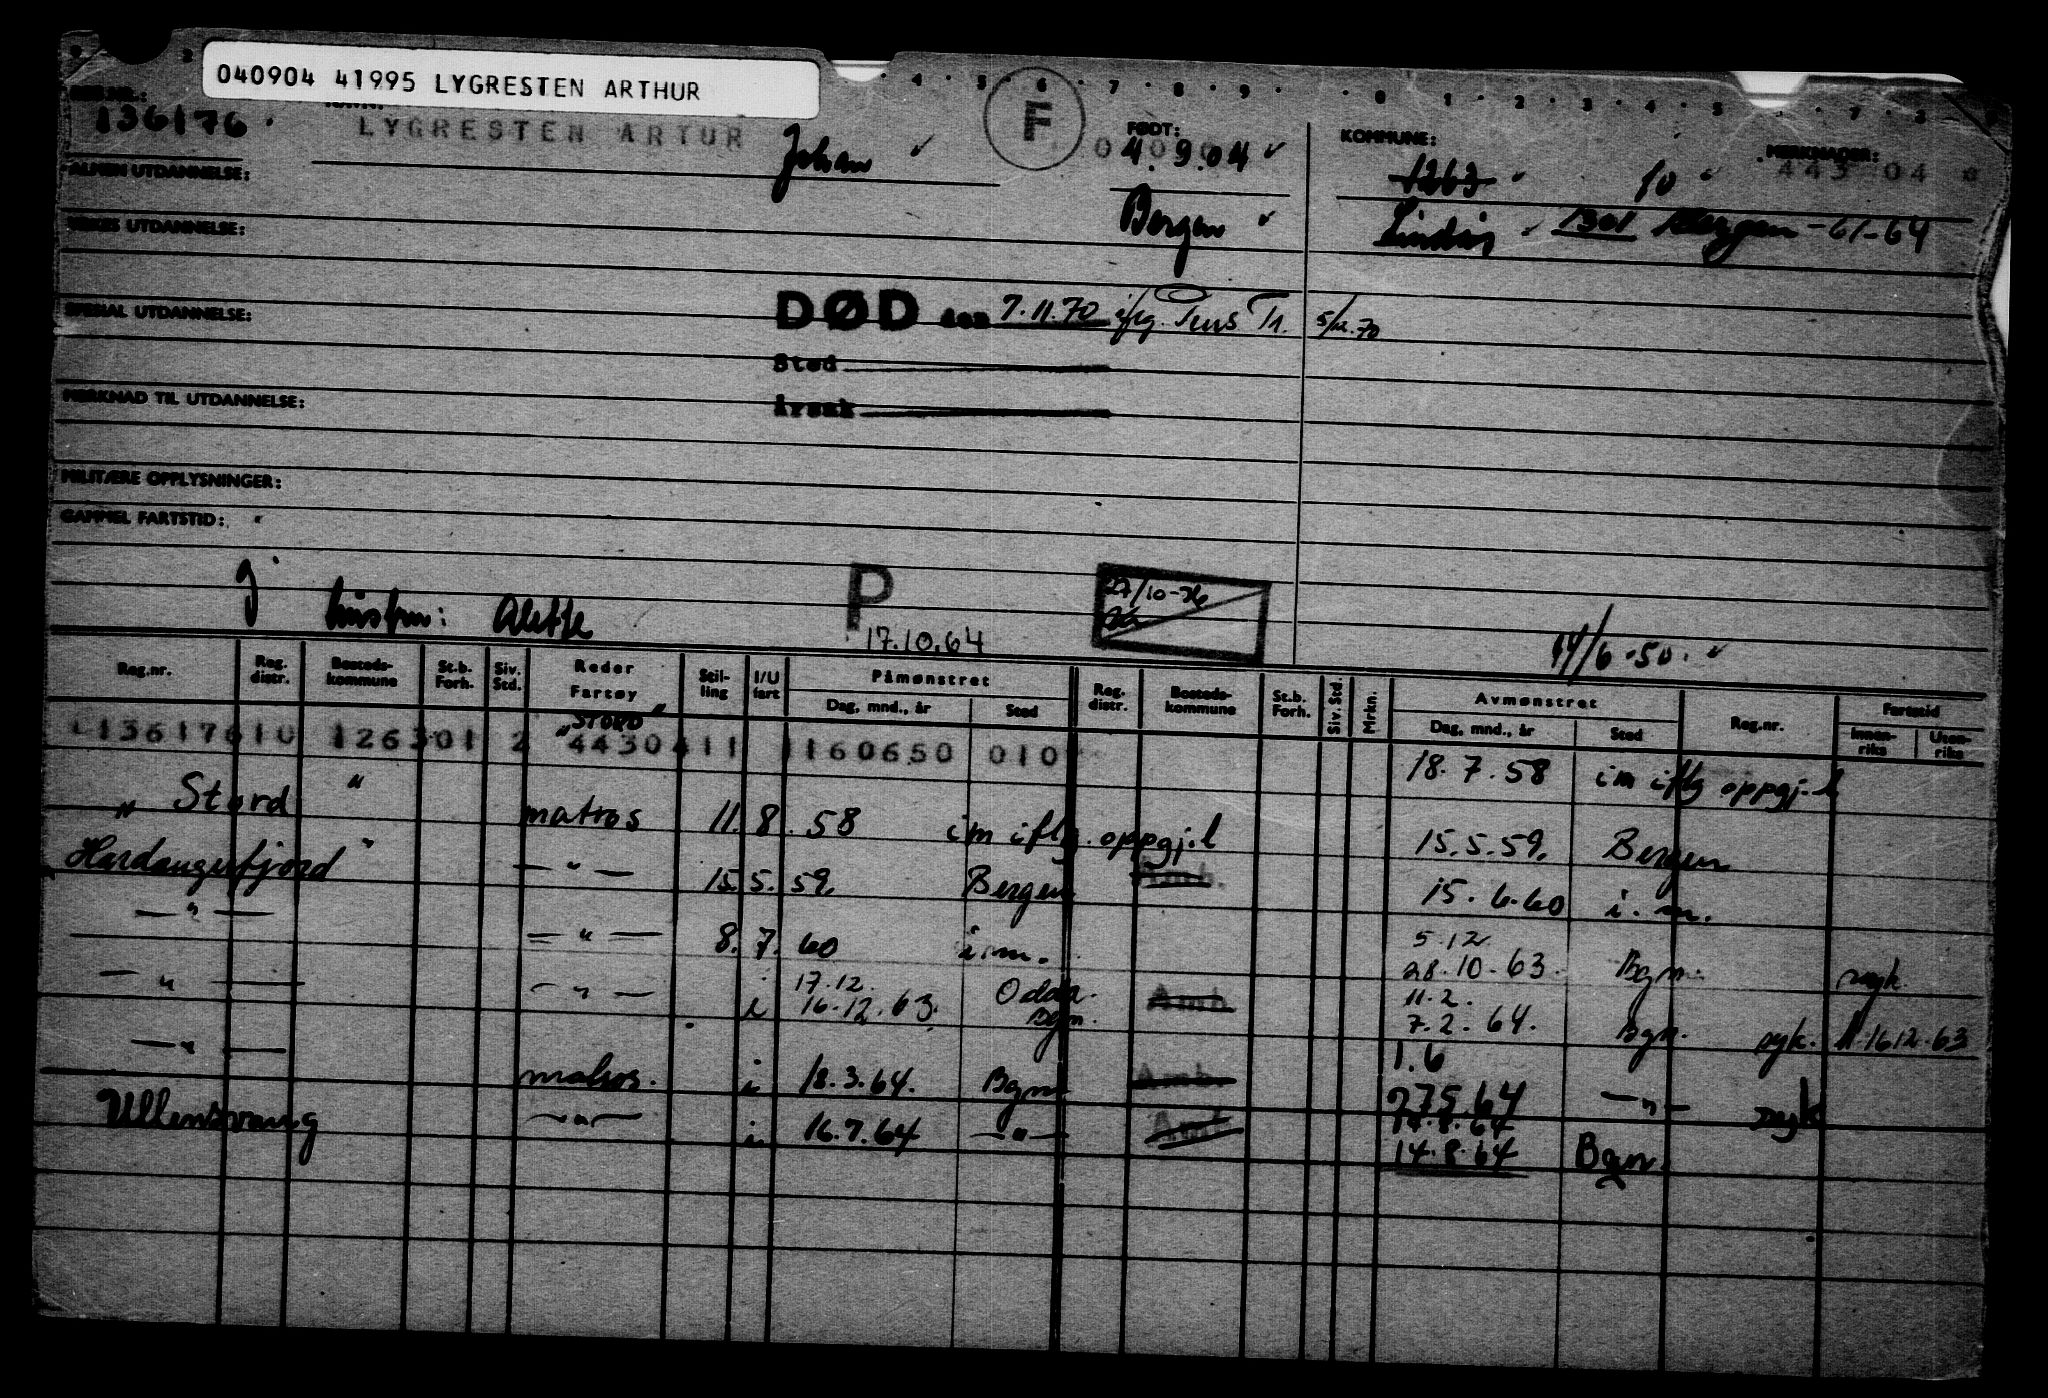 040904 41995 LYGRESTEN ARTHUR
136176.
LYGRESTEN ARTUR Johan
F
FØDT:
4.9.04
Bergen
KOMMUNE:
MERKNADER:
1263 10 443 04
Lindås 1301 Bergen -61-64
ALMEN UTDANNELSE:
YRKES UTDANNELSE:
SPESIAL UTDANNELSE:
DØD den 7.11.70 iflg. Tr. 5/12.70
Sted
Årsak
MERKNAD TIL UTDANNELSE:
MILITÆRE OPPLYSNINGER:
GAMMEL FARTSTID:
g hustru: Alette
P
17.10.64
27/10-36
14/6.50.
Reg.nr. Reg. distr. Bosteds-kommune St.b. Forh. Siv. Std. Reder Fartøy Stil-ling I/U fart Påmønstret Dag, mnd., år Sted Reg. distr. Bosteds-kommune St.b. Forh. Siv. Std. Mrkn. Avmønstret Dag, mnd., år Sted Reg.nr. Fartstid Innen-riks Uten-riks
"STORD"
13617610 126301 2 4430411 1160650 010 18.7.58 im iflg oppgj.l
" Stord " matros 11.8.58 im iflg. oppgj.l 15.5.59. Bergen
Hardangerfjord " — " — 15.5.59. Bergen Amb. 15.6.60 i.m.
— " — — " — 8.7.60 i.m. 5.12 28.10.63. Bgn. syk.
— " — — " — i 17.12. 16.12.63. Odda. Bgn. Amb. 11.2. 7.2.64. Bgn. syk. 16.12.63
— " — matros. i 18.3.64. Bgn. Amb. 1.6 27.5.64 — " — syk
Ullensvang — " — i 16.7.64 — " — Amb 14.8.64
14.8.64 Bgn.